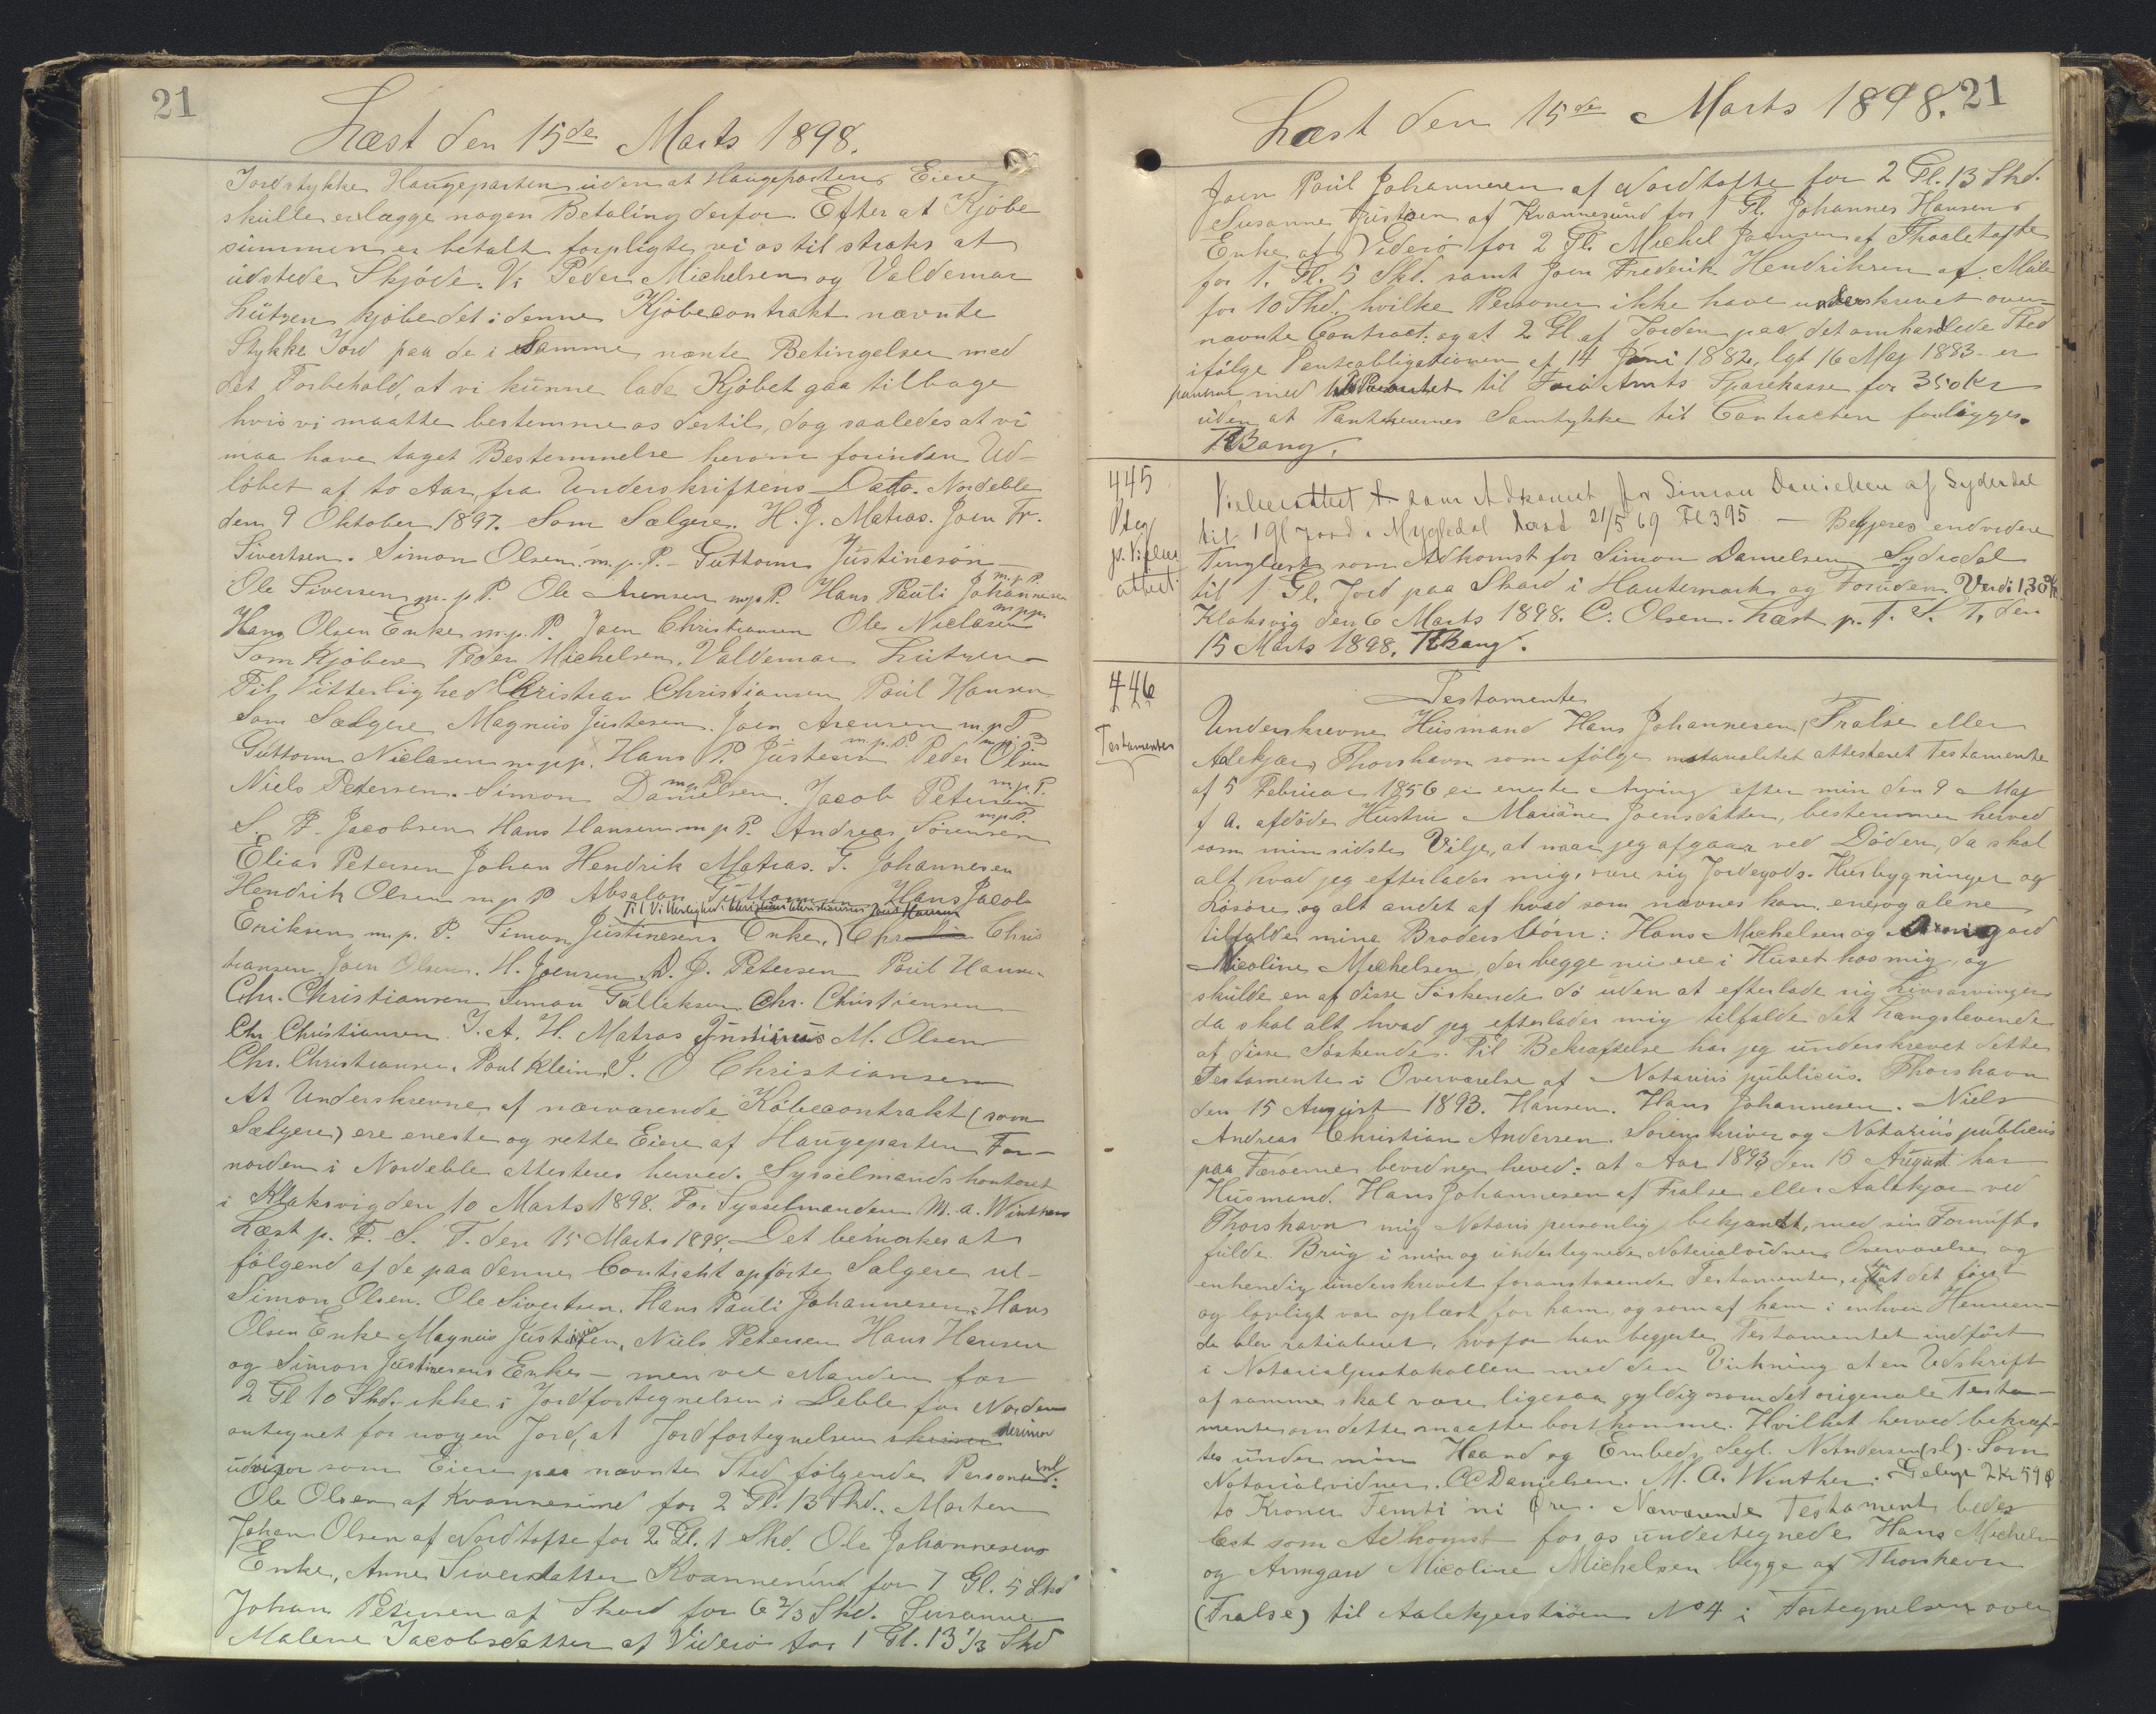 21
Læst den 15de Marts 1898.
Jordstykke Haugeparten uden at Haugepartens Eiere
skulle erlægge nogen Betaling derfor. Efter at Kjöbe
summen er betalt forpligte vi os til straks at
udstede Skjöde. Vi Peder Michelsen og Valdemar
Lützen kjöbe det i denne Kjöbecontrakt nævnte
Stykke Jord paa de i samme nævnte Betingelser med
det Forbehold, at vi kunne lade Kjöbet gaa tilbage
hvis vi maatte bestemme os dertil, dog saaledes at vi
maa have taget Bestemmelse herom forinden Ud-
löbet af to Aar fra Underskriftens Dato. Nordeble
den 9 Oktober 1897. Som Sælgere. H. J. Matras. Joen Fr.
Sivertsen. Simon Olsen m. p. P. - Guttorm Justinesön
Ole Siversen m. p P. Ole Arensen m p P. Hans Pauli Johannesen m. p. P.
Hans Olsen Enke m. p. P. Joen Christiansen Ole Niclasen m p p.
Som Kjöbere Peder Michelsen, Valdemar Lützen
Til Vitterlighed Christian Christiansen Poul Hansen
Som Sælgere Magnus Justesen. Joen Arensen m. p. P
Guttorm Niclasen m p p. Hans P. Justesen m. p. P. Peder Olsen m. p. P.
Niels Petersen. Simon Danielsen m p P. Jacob Petersen m. p. P.
S. F. Jacobsen Hans Hansen m p P. Andreas Sörensen m p P.
Elias Petersen Johan Hendrik Matras. T. Johannesen
Hendrik Olsen m p P Absalon Guttormsen Hans Jacob
Til Vitterlighed: Christian Christiansen Poul Hansen
Eriksen m. p. P. Simon Justinesens Enke, Chris
tiansen. Joen Olsen. H. Joensen. D. J. Petersen Poul Hansen
Chr. Christiansen Simon Chr. Christiansen
Chr. Christiansen. J. A. H. Matras Justinus M. Olsen
Chr. Christiansen. Poul Klein. J. O Christiansen
At Underskrevne af nærværende Köbecontrakt (som
Sælgere) ere eneste og rette Eiere af Haugeparten For-
norden i Nordeble attesteres herved. Sysselmandskontoret
i Klaksvig den 10 Marts 1898. For Sysselmanden M. A. Winther
Læst p. F. S. T. den 15 Marts 1898. Det bemærkes at
fölgend af de paa denne Contrakt opförte Sælgere nl-
Simon Olsen. Ole Sivertsen. Hans Pauli Johannesen. Hans
Olsen Enke Magnus Justesen, Niels Petersen Hans Hansen
og Simon Justinesens Enke - men vel Manden for
2 Gl 10 Skd. ikke i Jordfortegnelsen i Deble for Norden
antegnet for nogen Jord, at Jordfortegnelsen derimod
udviser som Eiere paa nævnte Sted fölgende Personer nl:
Ole Olsen af Kvannesund for 2 Gl. 13 Skd. Morten
Johan Olsen af Nordtofte for 2 Gl. 1 Skd. Ole Johannesens
Enke, Anne Siversdatter Kvannesund for 7 Gl. 5 Skd
Johan Petersen af Skard for 6 2/3 Skd. Susanne
Malene Jacobsdatter af Viderö for 1 Gl. 13 1/3 Skd
21
Læst den 15de Marts 1898.
Joen Poul Johannesen af Nordtofte for 2 Gl. 13 Skd.
Susanne Justsen af Kvannesund for 1 Gl. Johannes Hansens
Enke af Viderö for 2 Gl. Michel Joensen af Thoaletofte
for 1. Gl. 5 Skd. samt Joen Frederik Hendriksen af Mule
for 10 Skd. hvilke Personer ikke have underskrevet oven-
nævnte Contract; og at 2 Gl. af Jorden paa det omhandlede Sted
ifölge Panteobligationen af 14 Juni 1882, lyt 16 Maj 1883 er
med til Færö Amts Sparekasse for 350 Kr
uden at Panthavernes Samtykke til Contracten forligger.
RBang.
445
p. Vielses
attest
Vielsesattest som Adkomst for Simon Danielsen af Syderdal
til 1 Gl Jord i Mygledal læst 21/5 69 Fl 395 — Begjeres endvidere
Tinglæst som Adkomst for Simon Danielsen Sydradal
til 1 Gl. Jord paa Skard i Hautemark og Forüden. Verdi 130 Kr
Klaksvig den 6 Marts 1898. C. Olsen. Læst p. F. S. T. den
15 Marts 1898. RBang.
446
Testamente
Testamente
Underskrevne Husmand Hans Johannesen, Fralse eller
Aalekjær, Thorshavn som ifölge notarialitet attesteret Testamente
af 5 Februar 1856 er eneste Arving efter min den 9 Maj
f A. afdöde Hustru Mariane Joensdatter, bestemmer herved
som min sidste Vilje, at naar jeg afgaar ved Döden, da skal
alt hvad jeg efterlader mig, være sig Jordegods, Husbygninger og
Lösöre og alt andet af hvad som nævnes kan, ene og alene
tilfalde mine Broders börn: Hans Michelsen og Armgard
Nicoline Michelsen, der begge nu ere i Huset hos mig, og
skulde en af disse Söskende dö uden at efterlade sig Livsarvinger
da skal alt, hvad jeg efterlader mig tilfalde det Længslevende
af disse Söskende. Til Bekræftelse har jeg underskrevet dette
Testamente i Overværelse af Notarius publicus. Thorshavn
den 15 August 1893. Hansen. Hans Johannesen. Niels
Andreas Christian Andersen. Sorenskriver og Notarius publicus
paa Færöerne bevidner herved: at Aar 1893 den 15 August har
Husmand. Hans Johannesen af Fralse eller Aalekjær ved
Thorshavn mig Notario personlig bekjendt, med sin Fornufts
fulde Brug i min og undertegnede Notarialvidners Overværelse og
enhendig underskrevet foranstaaende Testamente, efterat det först
og lovligt var oplæst for ham, og som af ham i enhver Henseen-
de blev ratiaberet, hvorfor han begjærte Testamentet indfört
i Notarialprotokollen med den Virkning at en Udskrift
af samme skal være ligesaa gyldig som det originale Testa-
mente om dette maatte bortkomme. Hvilket herved bekræf-
tes under min Haand og Embeds Segl. NAndersen (sl). Som
Notarialvidner. CC Danjelsen. M. A. Winther. Gebyr 2 Kr 59 Ø
to Kroner Femti ni Öre. Nærværende Testament bedes
læst som Adkomst for os undertegnede Hans Michelsen
og Armgard Nicoline Michelsen begge af Thorshavn
(Fralse) til Aalekjerströen No 4 i Fortegnelsen over